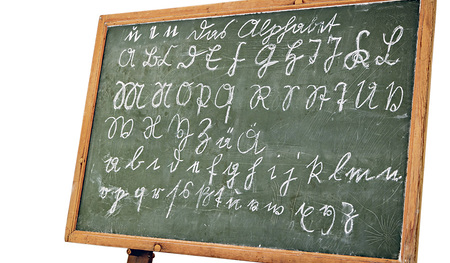 das Alphabet
A B C D E F G H I J K L
M N O P Q R S T U V
W X Y Z ä Ä
a b c d e f g h i j k l m n
o p q r s ß t u v w x y z